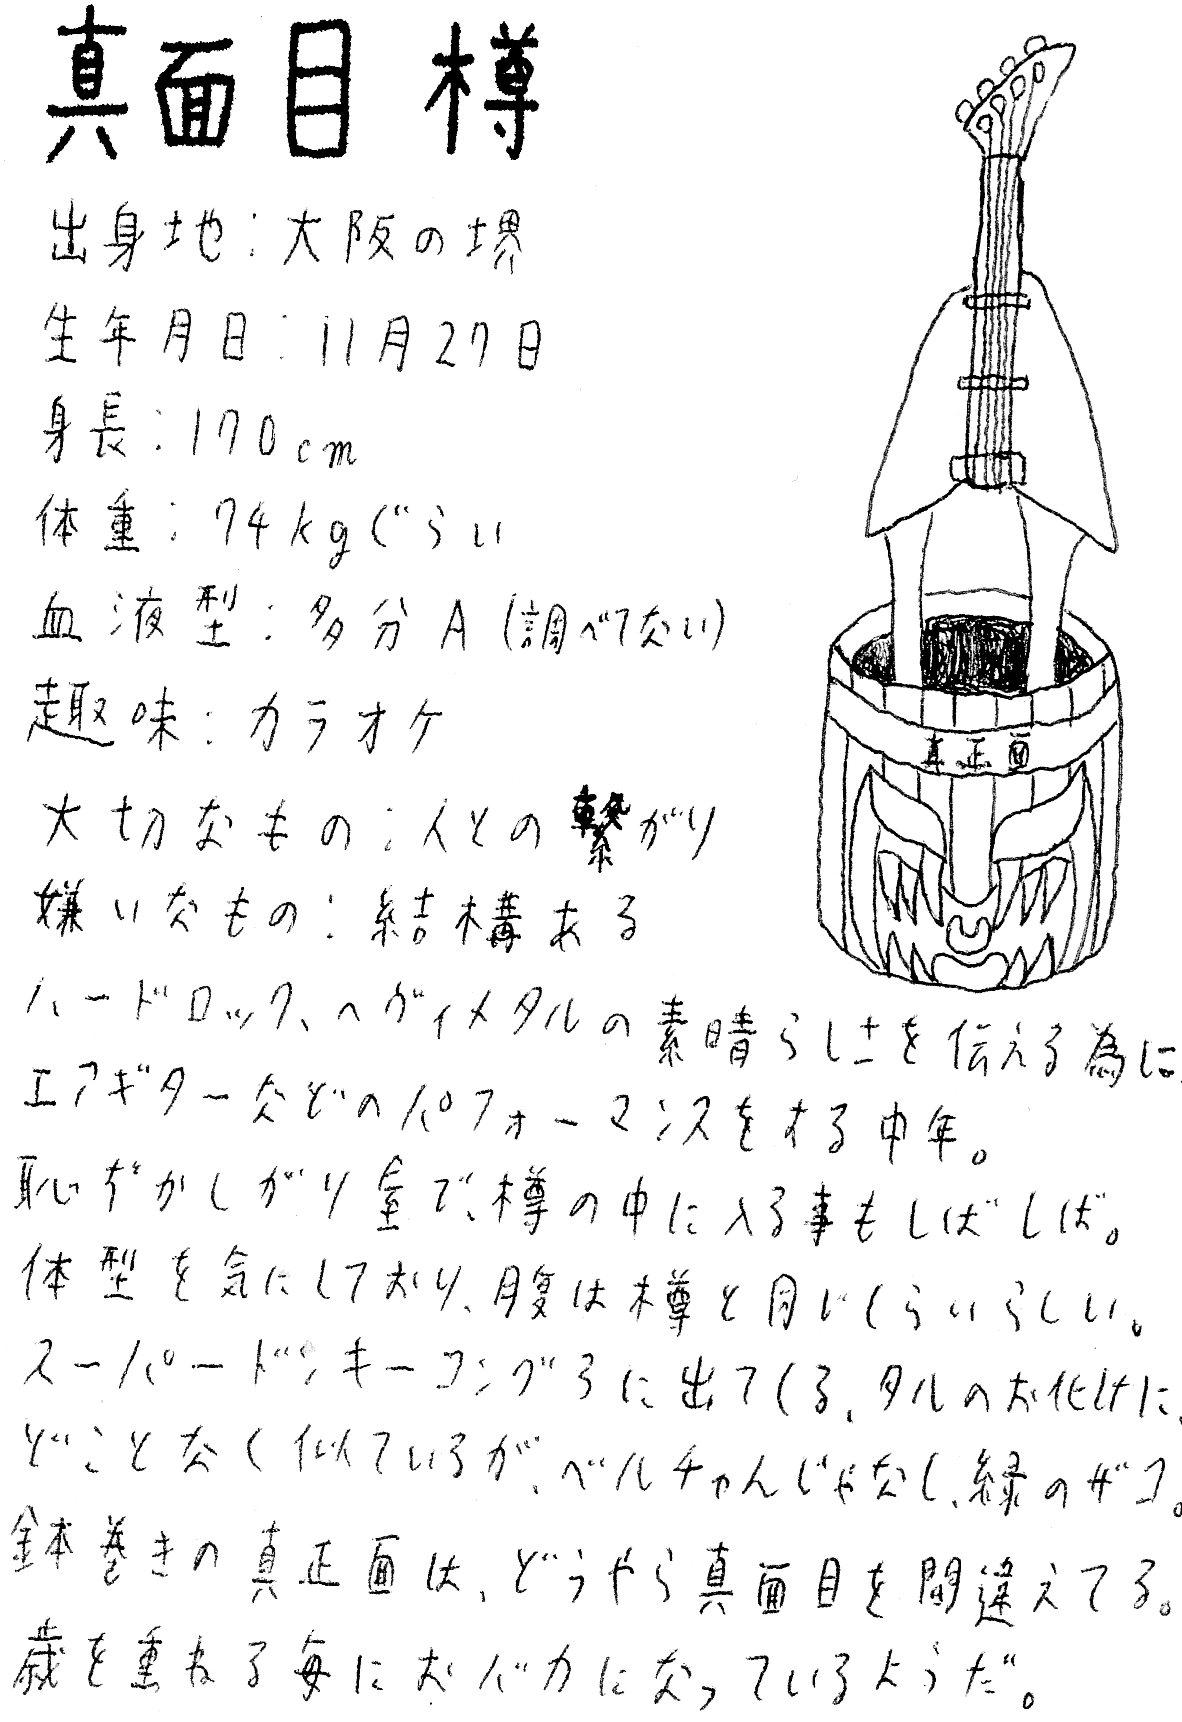 真面目 樽
出身地:大阪の堺
生年月日:11月27日
身長:170cm
体重:74kgぐらい
血液型:多分A(調べてない)
趣味:カラオケ
大切なもの:人との繋がり
嫌いなもの:結構ある
真正面
ハードロック、ヘヴィメタルの素晴らしさを伝える為に、
エアギターなどのパフォーマンスをする中年。
恥ずかしがり屋で、樽の中に入る事もしばしば。
体型を気にしており、腹は樽と同じくらいらしい。
スーパードンキーコング3に出てくる、タルのお化けに、
どことなく似ているが、ベルチャんじゃなし、緑のザコ。
鉢巻きの真正面は、どうやら真面目を間違えてる。
歳を重ねる毎におバカになっているようだ。